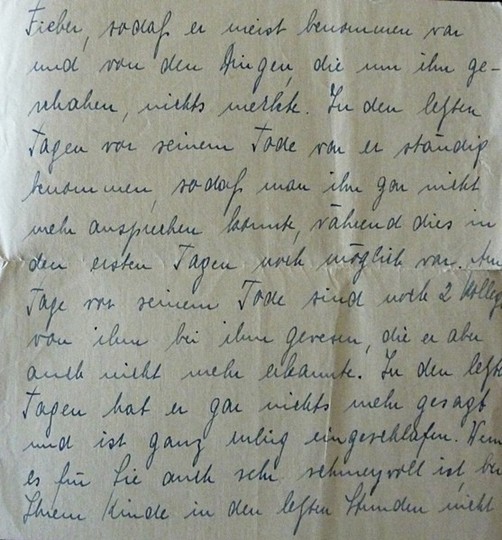 Fieber, sodaß er meist benommen war
und von den Dingen, die um ihn ge-
schahen, nichts merkte. In den letzten
Tagen vor seinem Tode war er ständig
benommen, sodaß man ihn gar nicht
mehr ansprechen konnte, während dies in
den ersten Tagen noch möglich war. Am
Tage vor seinem Tode sind noch 2 Kolleg
von ihm bei ihm gewesen, die er aber
auch nicht mehr erkannte. In den letzt
Tagen hat er gar nichts mehr gesagt
und ist ganz ruhig eingeschlafen. Wenn
es für Sie auch sehr schmerzvoll ist, bei
Ihrem Kinde in den letzten Stunden nicht